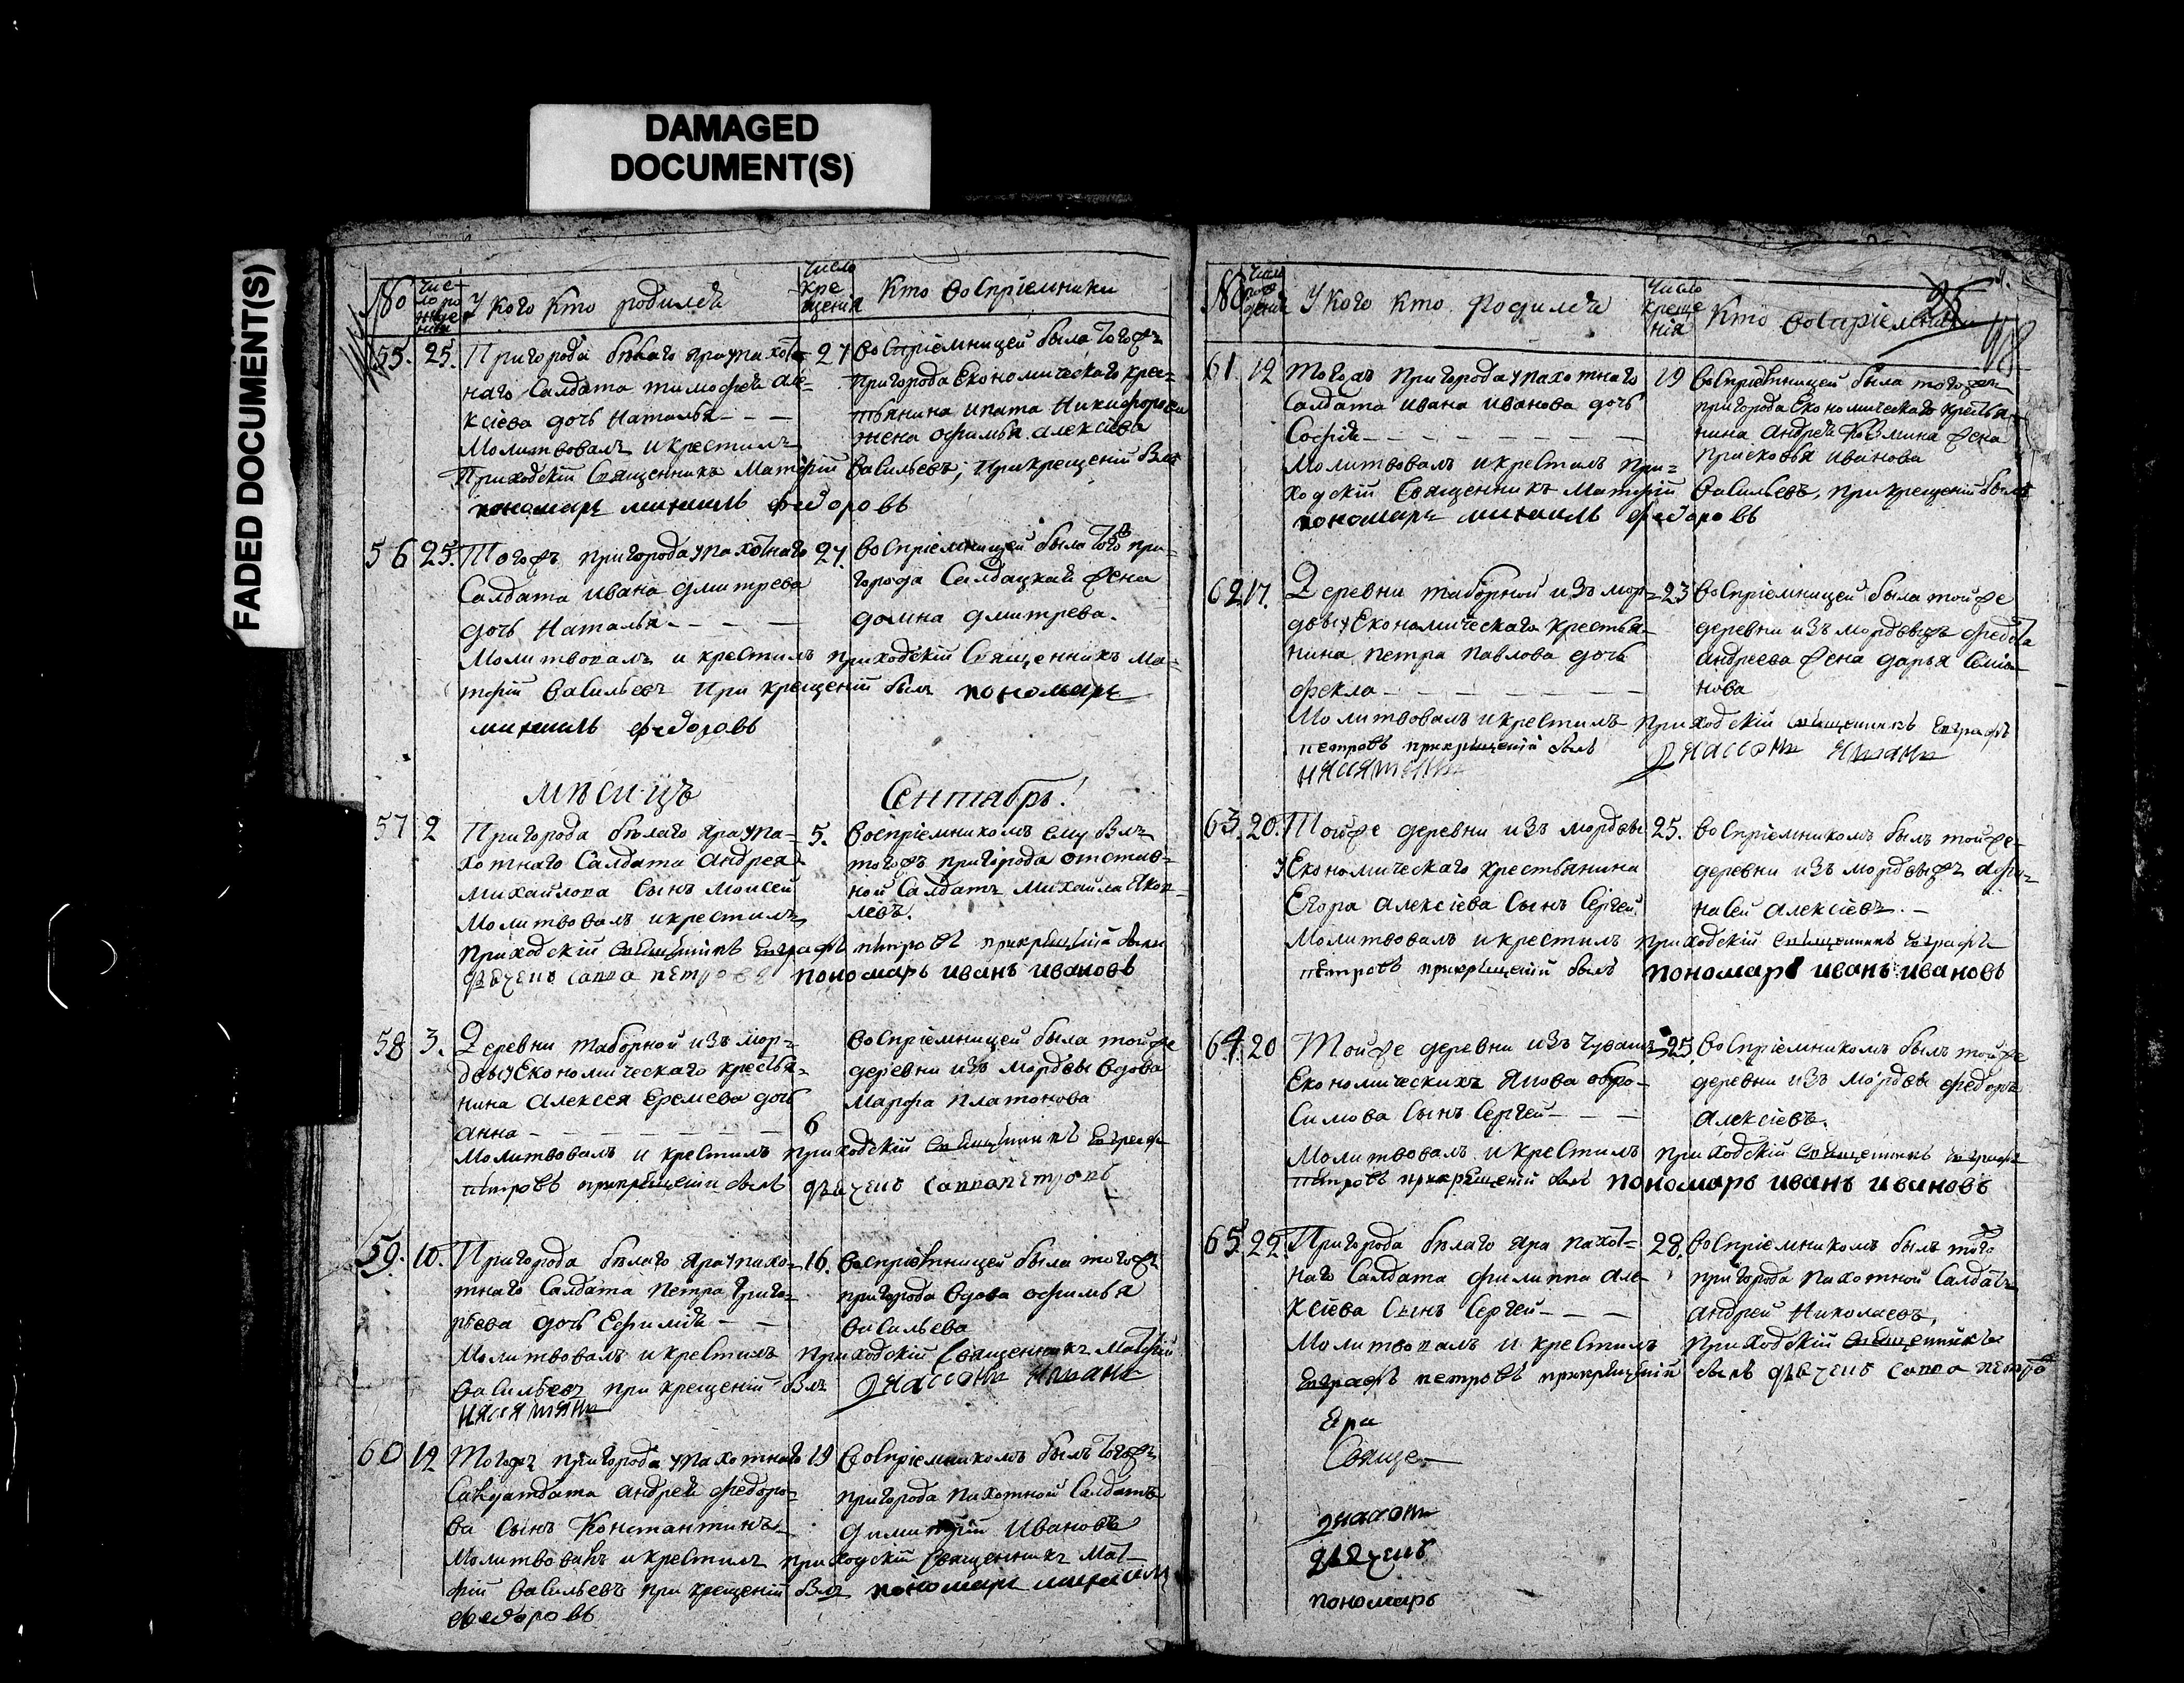 DAMAGED
DOCUMENT(S)
FADED DOCUMENT(S)
№ Число рождения У кого кто родился Число крещения Кто восприемники
55. 25. Пригорода белаго Яра у пахот-
наго Салдата тимофея але-
ксіева дочь Наталья
Молитвовалъ и крестилъ
27 восприемницей была тогожъ
пригорода Економическаго крес-
тьянина ипата Никифорова
жена офимья алексіева
Приходскій Священникъ Матфій Васильевъ, при крещеніи былъ
пономарь михаилъ федоровъ
56 25. Тогожъ пригорода у пахотнаго
Салдата ивана дмитрева
дочь Наталья
27. восприемницей была того при-
города Салдацкая жена
домна дмитрева.
Молитвовалъ и крестилъ приходскій Священникъ Ма-
тфій Васильевъ При крещеніи былъ пономарь
михаилъ федоровъ
мѣсицъ Сентябрь!
57 2 Пригорода бѣлаго Яра у па-
хотнаго Салдата андрея
михайлова сынъ моисей
Молитвовалъ и крестилъ
5. восприемникомъ ему былъ
тогожъ пригорода отстав-
ной Салдатъ михайла Яков-
левъ.
приходскій священникъ Евграфъ петровъ при крещеніи были
дьячекъ савва петровъ пономарь иванъ ивановъ
58 3. Деревни таборной изъ мор-
двы у Економическаго крестья-
нина алексея еремеева дочь
анна
6 восприемницей была тойже
деревни изъ мордвы вдова
марфа платонова
Молитвовалъ и крестилъ приходскій священникъ Евграфъ
петровъ при крещеніи былъ дьячекъ савва петровъ
59. 10. Пригорода бѣлаго Яра у пахо-
тнаго Салдата петра григо-
рьева дочь Ефимія
16. восприемницей была тогожъ
пригорода вдова офимья
васильева
Молитвовалъ и крестилъ приходскій Священникъ Матфій
васильевъ при крещеніи былъ
60 12 Тогожъ пригорода у пахотнаго
андрея федоро-
ва сынъ Константинъ
19 восприемникомъ былъ тогожъ
пригорода пахотной Салдатъ
димитрій Ивановъ
Молитвовалъ и крестилъ приходскій священникъ Мат-
фій васильевъ при крещеніи былъ пономарь михаилъ
федоровъ
№ Число рождения У кого кто родился Число крещенія Кто восприемники
25
61. 12 тогожъ пригорода у пахотнаго
Салдата ивана иванова дочь
Софія
19 восприемницей была тогожъ
пригорода Економическаго крестья-
нина андрея козмина жена
прасковья иванова
Молитвовалъ и крестилъ при-
ходскій Священникъ Матфій васильевъ, при крещеніи былъ
пономарь михаилъ федоровъ
62 17. Деревни таборной изъ мор-
двы у Економическаго крестья-
нина петра павлова дочь
фекла
23 восприемницей была тойже
деревни изъ мордвы
андреева жена дарья
нова
Молитвовалъ и крестилъ приходскій священникъ Евграфъ
петровъ при крещеніи былъ
63. 20. Тойже деревни изъ мордвы
у Економическаго крестьянина
Егора алексіева сынъ Сергей
25. восприемникомъ былъ тойже
деревни изъ мордвы афа-
насей алексіевъ.
Молитвовалъ и крестилъ приходскій священникъ Евграфъ
петровъ при крещеніи былъ пономарь иванъ ивановъ
64. 20 Тойже деревни изъ чувашъ
Економическихъ Якова абро-
симова сынъ Сергей
25 восприемникомъ былъ тойже
деревни изъ мордвы федоръ
алексіевъ.
Молитвовалъ и крестилъ приходскій священникъ Евграфъ
петровъ при крещеніи былъ пономарь иванъ ивановъ
65. 22. Пригорода бѣлаго Яра пахот-
наго Салдата филиппа але-
ксіева сынъ Сергей
28. восприемникомъ былъ того
пригорода пахотной Салдатъ
андрей Николаевъ,
Молитвовалъ и крестилъ приходскій священникъ
Евграфъ петровъ при крещеніи былъ дьячекъ савва петро
Яра
Свяще
дьячекъ
пономарь